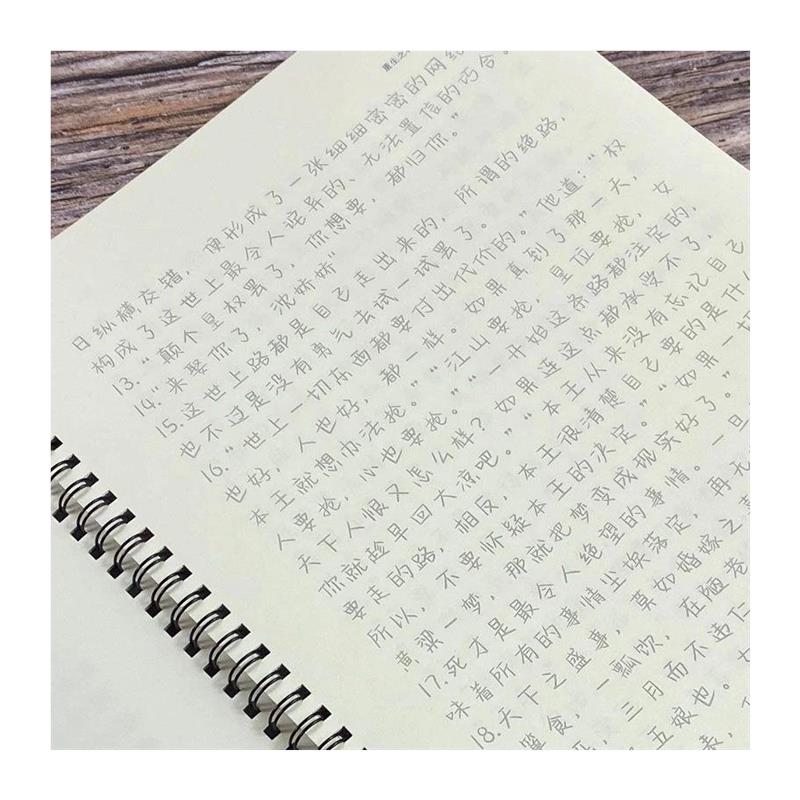 重生之
日纵横交错，便形成了一张细细密密的网络
构成了这世上最令人诧异的、无法置信的巧合。
13.“颠个皇权罢了，你想要，都归你。”
14.“来娶你了，沈娇娇”
15.这世上路都是自己走出来的，所谓的绝路，
也不过是没有勇气去试一试罢了。”
16.“世上一切东西都要付出代价的。”他道：“权
也好，人也好，都一样。如果真到了那一天，
本王就想办法抢。”“江山要抢，皇位要抢，女
人要抢，心也要抢。”“一开始这条路都注定的，
天下人恨又怎么样？如果连这点都承受不了，
你就趁早回大凉吧。”“本王从来没有忘记自己
要走的路，相反，本王很清楚自己要的是什
所以，不要怀疑本王的决定。”“如果一切
黄粱一梦，那就把梦变成现实好了。”
17.死才是最令人绝望的事情。一旦
味着所有的事情尘埃落定，再无
18.天下之盛事，莫如婚嫁之
箪食，一瓢饮，在陋巷
三月而不违仁
五娘也。